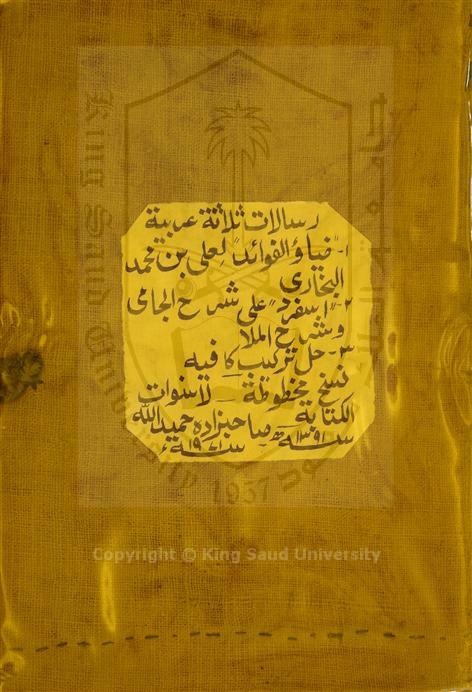 رسالات ثلاثة عربية
١- "ضياؤ الفوائد" لعلى بن محمد
البخارى
٢- "اسفرد" على شرح الجامى
وشرح الملا
٣- حل تركيب كافيه
نسخ مخطوطة - لاسنوات
الكتابة - صاحبزاده حميدالله
سنة ١٣٩١ھ سنة ١٩٧١ء
King Saud University
1957
Copyright © King Saud University